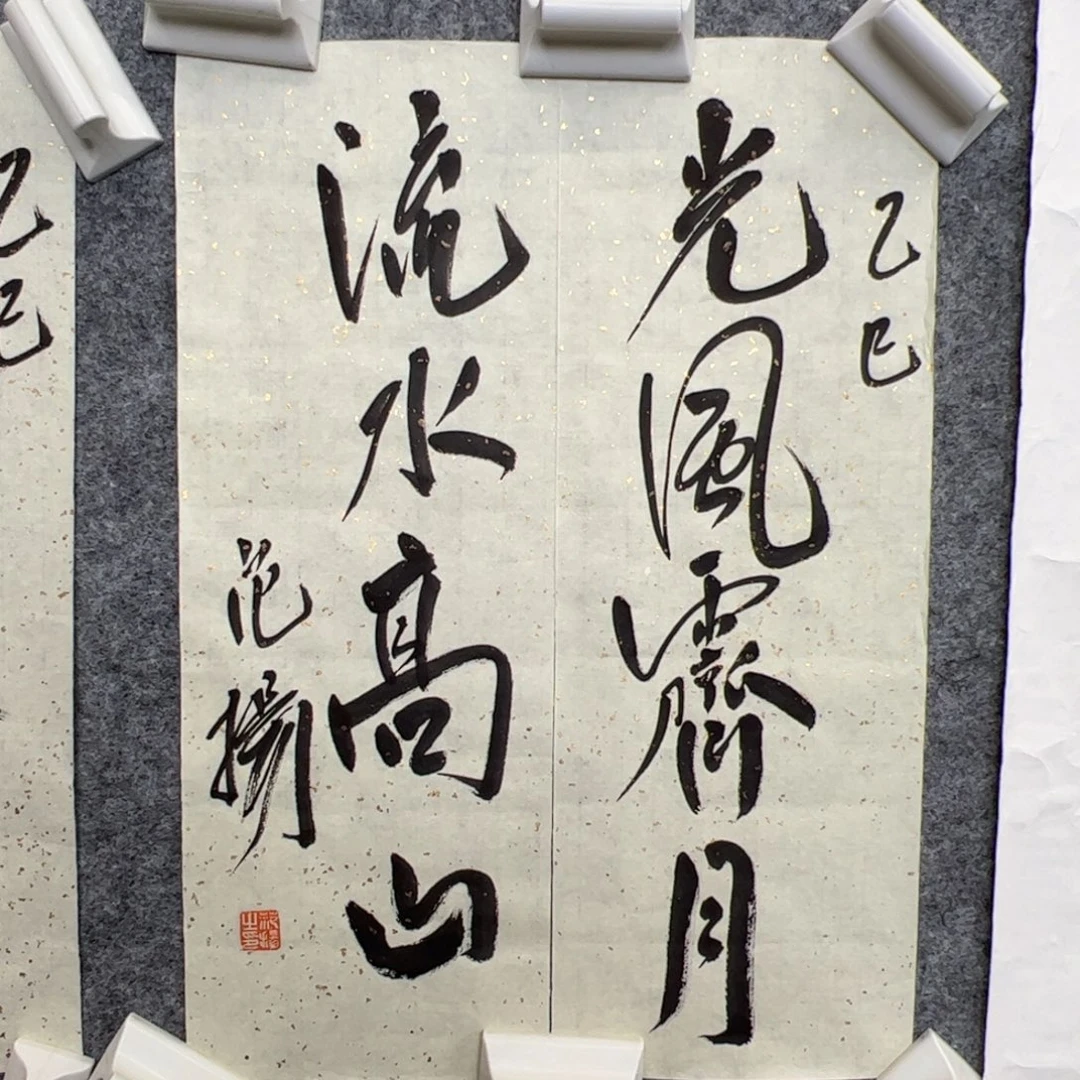 乙巳
光風霽月
流水高山
范揚
乙巳